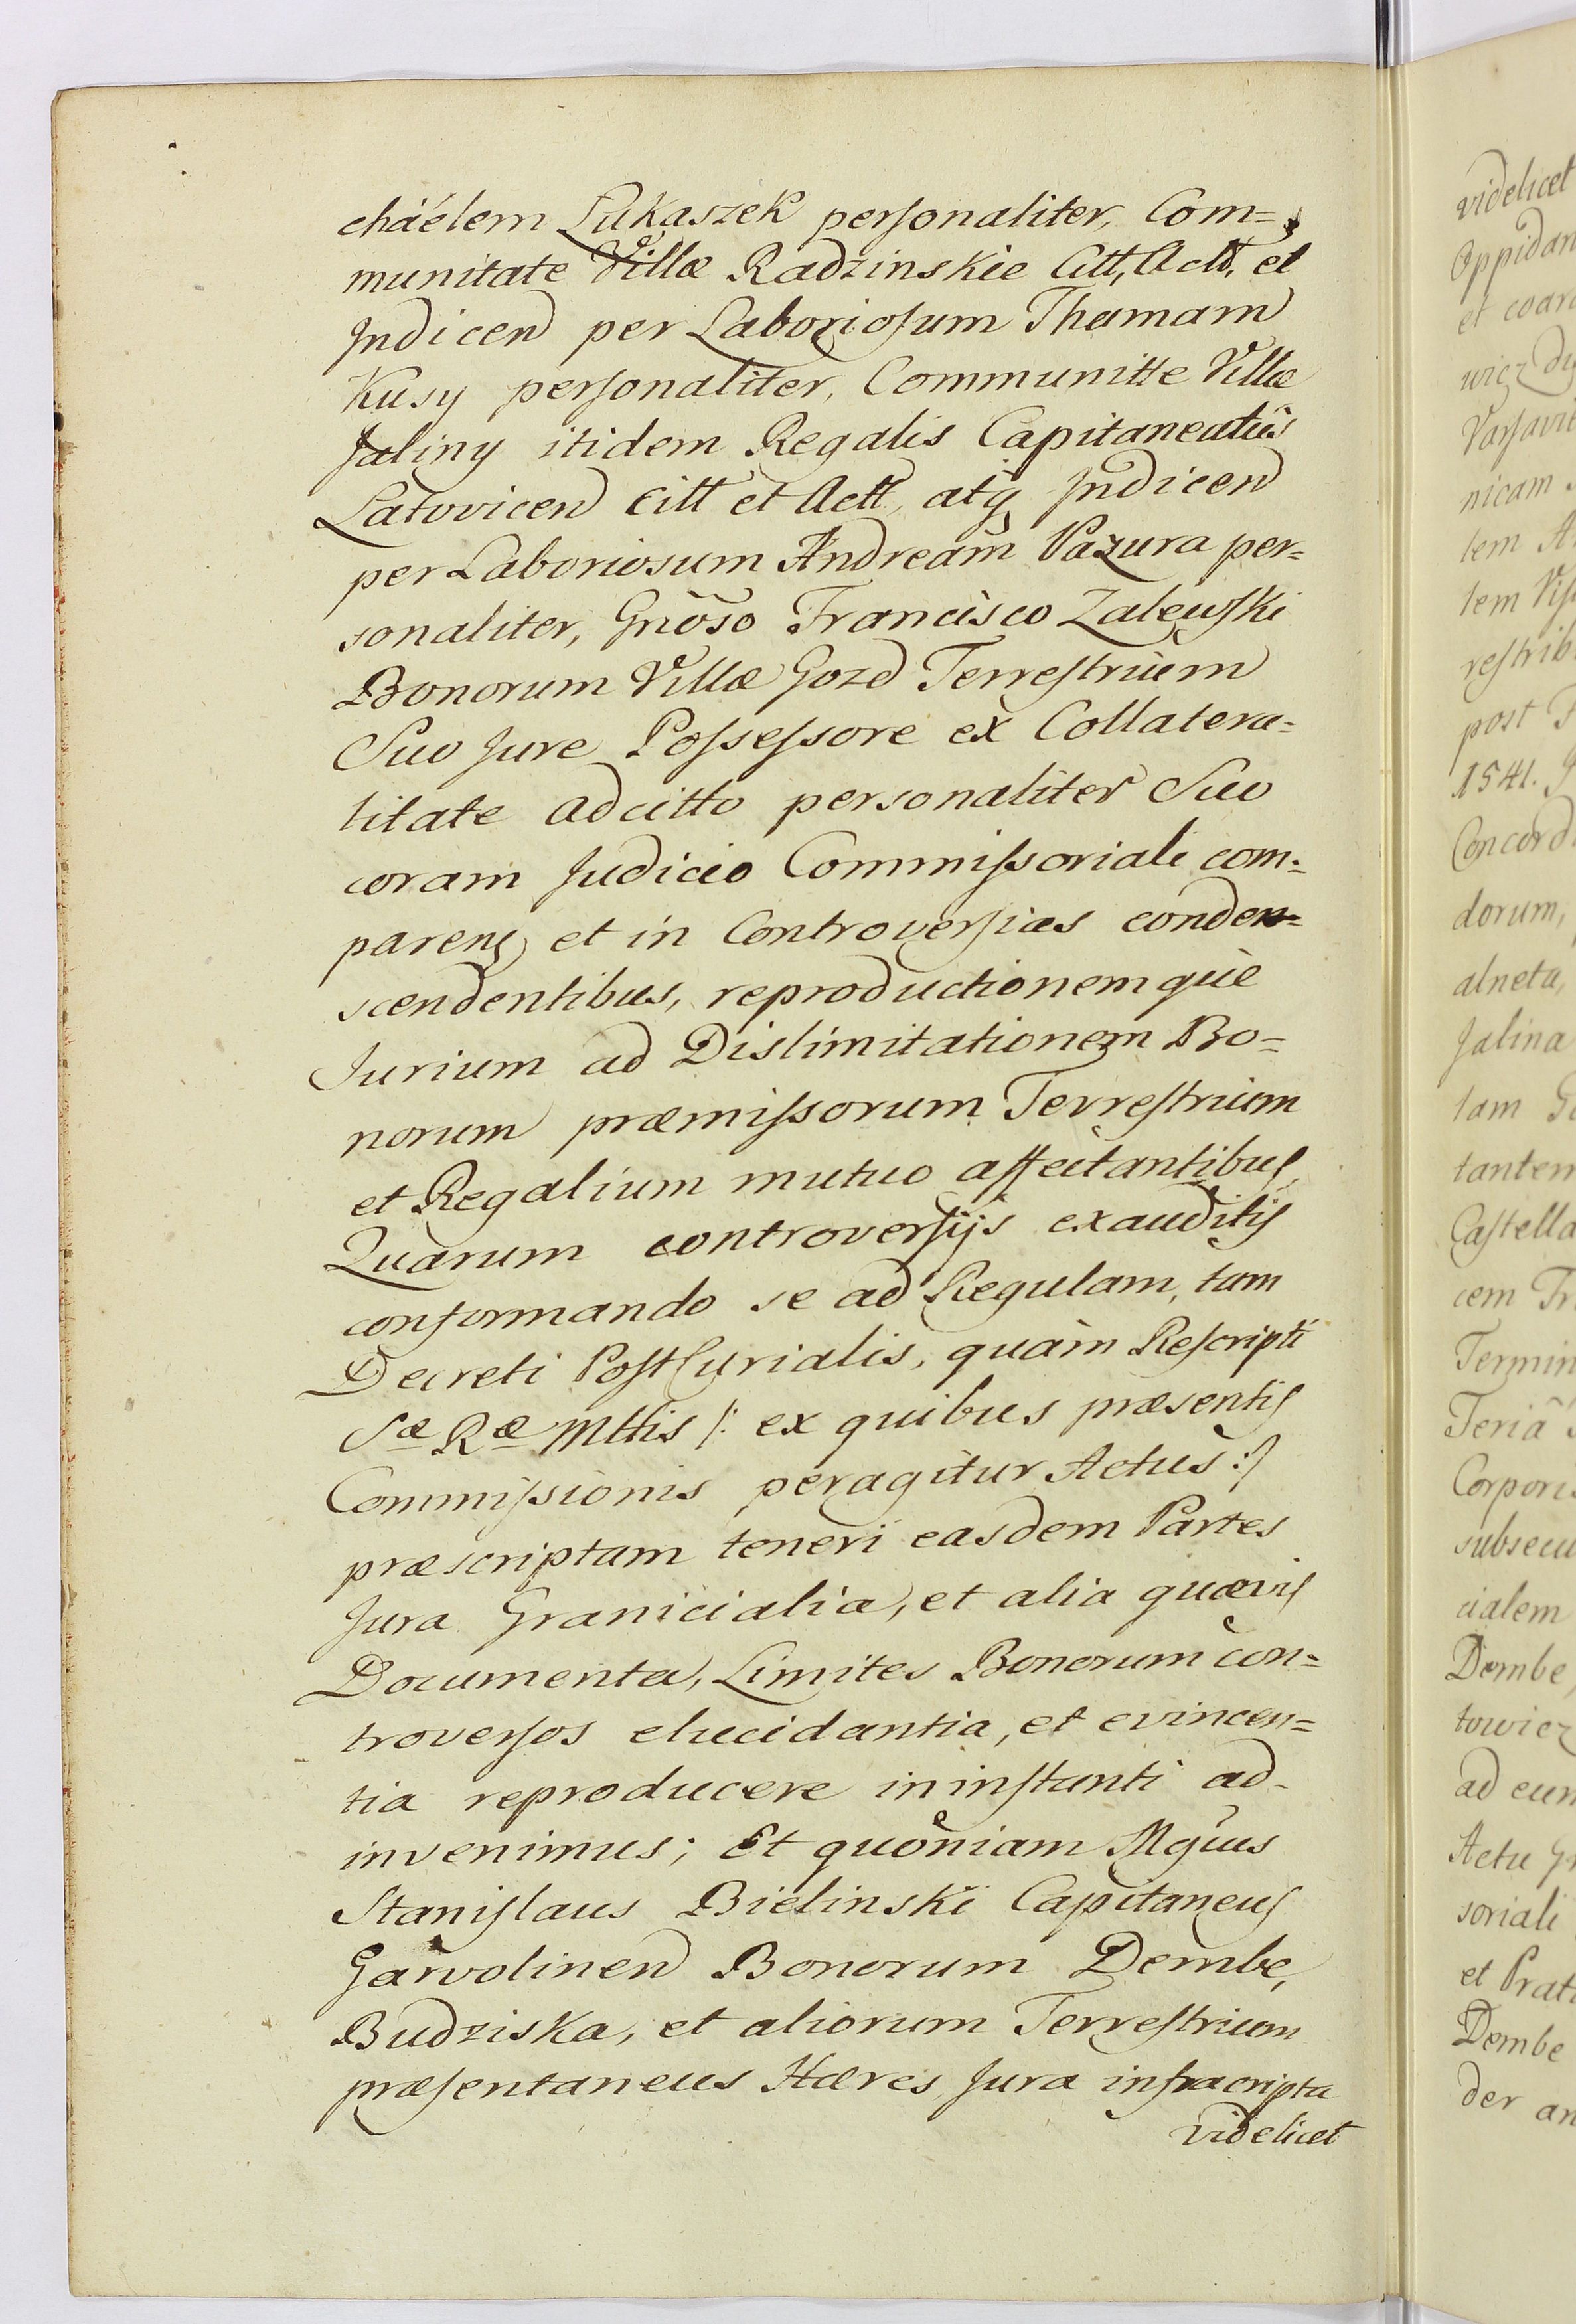 cháelem Lukaszek personaliter, Com=
munitate Villæ Radzinskie Citt, Actt, et
Judicen per Laboriosum Thamam
Kusy personaliter, Communitte Villæ
Jaliny itidem Regalis Capitaneatus
Latovicen citt et Actt, atq Judicen
per Laboriosum Andream Pazura per=
sonaliter, Gnoso Francisco Zalewski
Bonorum Villæ Gozd Terrestrium
Suo Jure Possessore ex Collatera=
litate adcitto personaliter Suo
coram Judicio Commissoriali com=
paren, et in Controversias conden=
scendentibus, reproductionemque
Jurium ad Dislimitationem Bo=
norum præmissorum Terrestrium
et Regalium mutuo affectantibus,
Quarum controversijs exauditis
conformando se ad Regulam, tam
Decreti PostCurialis, quàm Rescripti
Sæ Ræ Mttis /: ex quibus præsentis
Commissionis peragitur Actus :/
præscriptam teneri easdem Partes
Jura Granicialia, et alia quævis
Documenta, Limites Bonorum con=
troversos elucidantia, et evincen=
tia reproducere in instanti ad-
invenimus; Et quoniam Mgcus
Stanislaus Bielinski Capitaneus
Garvolinen Bonorum Dembe,
Budziska, et aliorum Terrestrium
præsentaneus Hæres Jura infracripta
videlicet
videlicet
Oppidan
et coar
wicz
Varsavie
nicam
tem
tem
restrib
post
1541.
Concord
dorum,
alneta,
Jalina
tam
tantem
Castella
cem Tr
Termin
Feriã
Corporis
subsecu
cialem
Dembe,
towicz
ad eun
Actu
soriali
et Prat
Dembe
der an